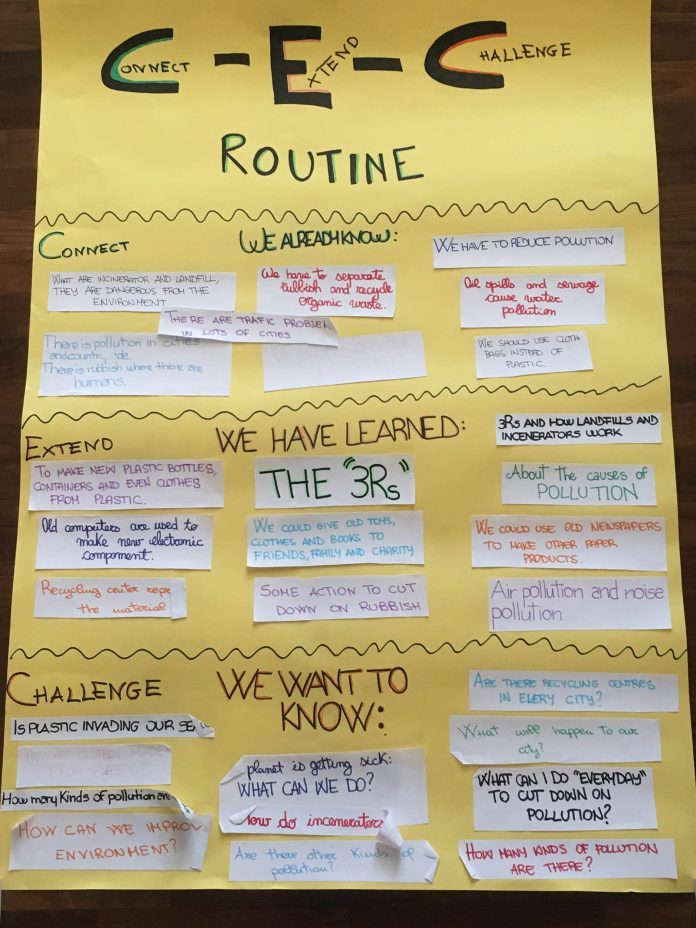 CONNECT - EXTEND - CHALLENGE
ROUTINE
CONNECT
WE ALREADY KNOW:
WHAT ARE INCINERATOR AND LANDFILL,
THEY ARE DANGEROUS FROM THE
ENVIRONMENT
We have to separate
rubbish and recycle
organic waste.
WE HAVE TO REDUCE POLLUTION
Oil spills and sewage
cause water
pollution
THERE ARE TRAFIC PROBLEM
IN LOTS OF CITIES
There is pollution in cities
and
There is rubbish where there are
humans.
WE SHOULD USE CLOTH
BAGS INSTEAD OF
PLASTIC.
EXTEND
WE HAVE LEARNED:
TO MAKE NEW PLASTIC BOTTLES,
CONTAINERS AND EVEN CLOTHES
FROM PLASTIC.
Old computers are used to
make new electronic
component.
Recycling center repr
the material
THE "3Rs"
WE COULD GIVE OLD TOYS,
CLOTHES AND BOOKS TO
FRIENDS, FAMILY AND CHARITY
SOME ACTION TO CUT
DOWN ON RUBBISH
3Rs AND HOW LANDFILLS AND
INCENERATORS WORK
About the causes of
POLLUTION
WE COULD USE OLD NEWSPAPERS
TO MAKE OTHER PAPER
PRODUCTS.
Air pollution and noise
pollution
CHALLENGE
WE WANT TO
KNOW:
IS PLASTIC INVADING OUR SEA
FROM PLASTIC?
How many kinds of pollution are
HOW CAN WE IMPROV
ENVIRONMENT?
planet is getting sick:
WHAT CAN WE DO?
How do incenerators
Are there other kinds of
pollution?
ARE THERE RECYCLING CENTRES
IN EVERY CITY?
What will happen to our
city?
WHAT CAN I DO "EVERYDAY"
TO CUT DOWN ON
POLLUTION?
HOW MANY KINDS OF POLLUTION
ARE THERE?